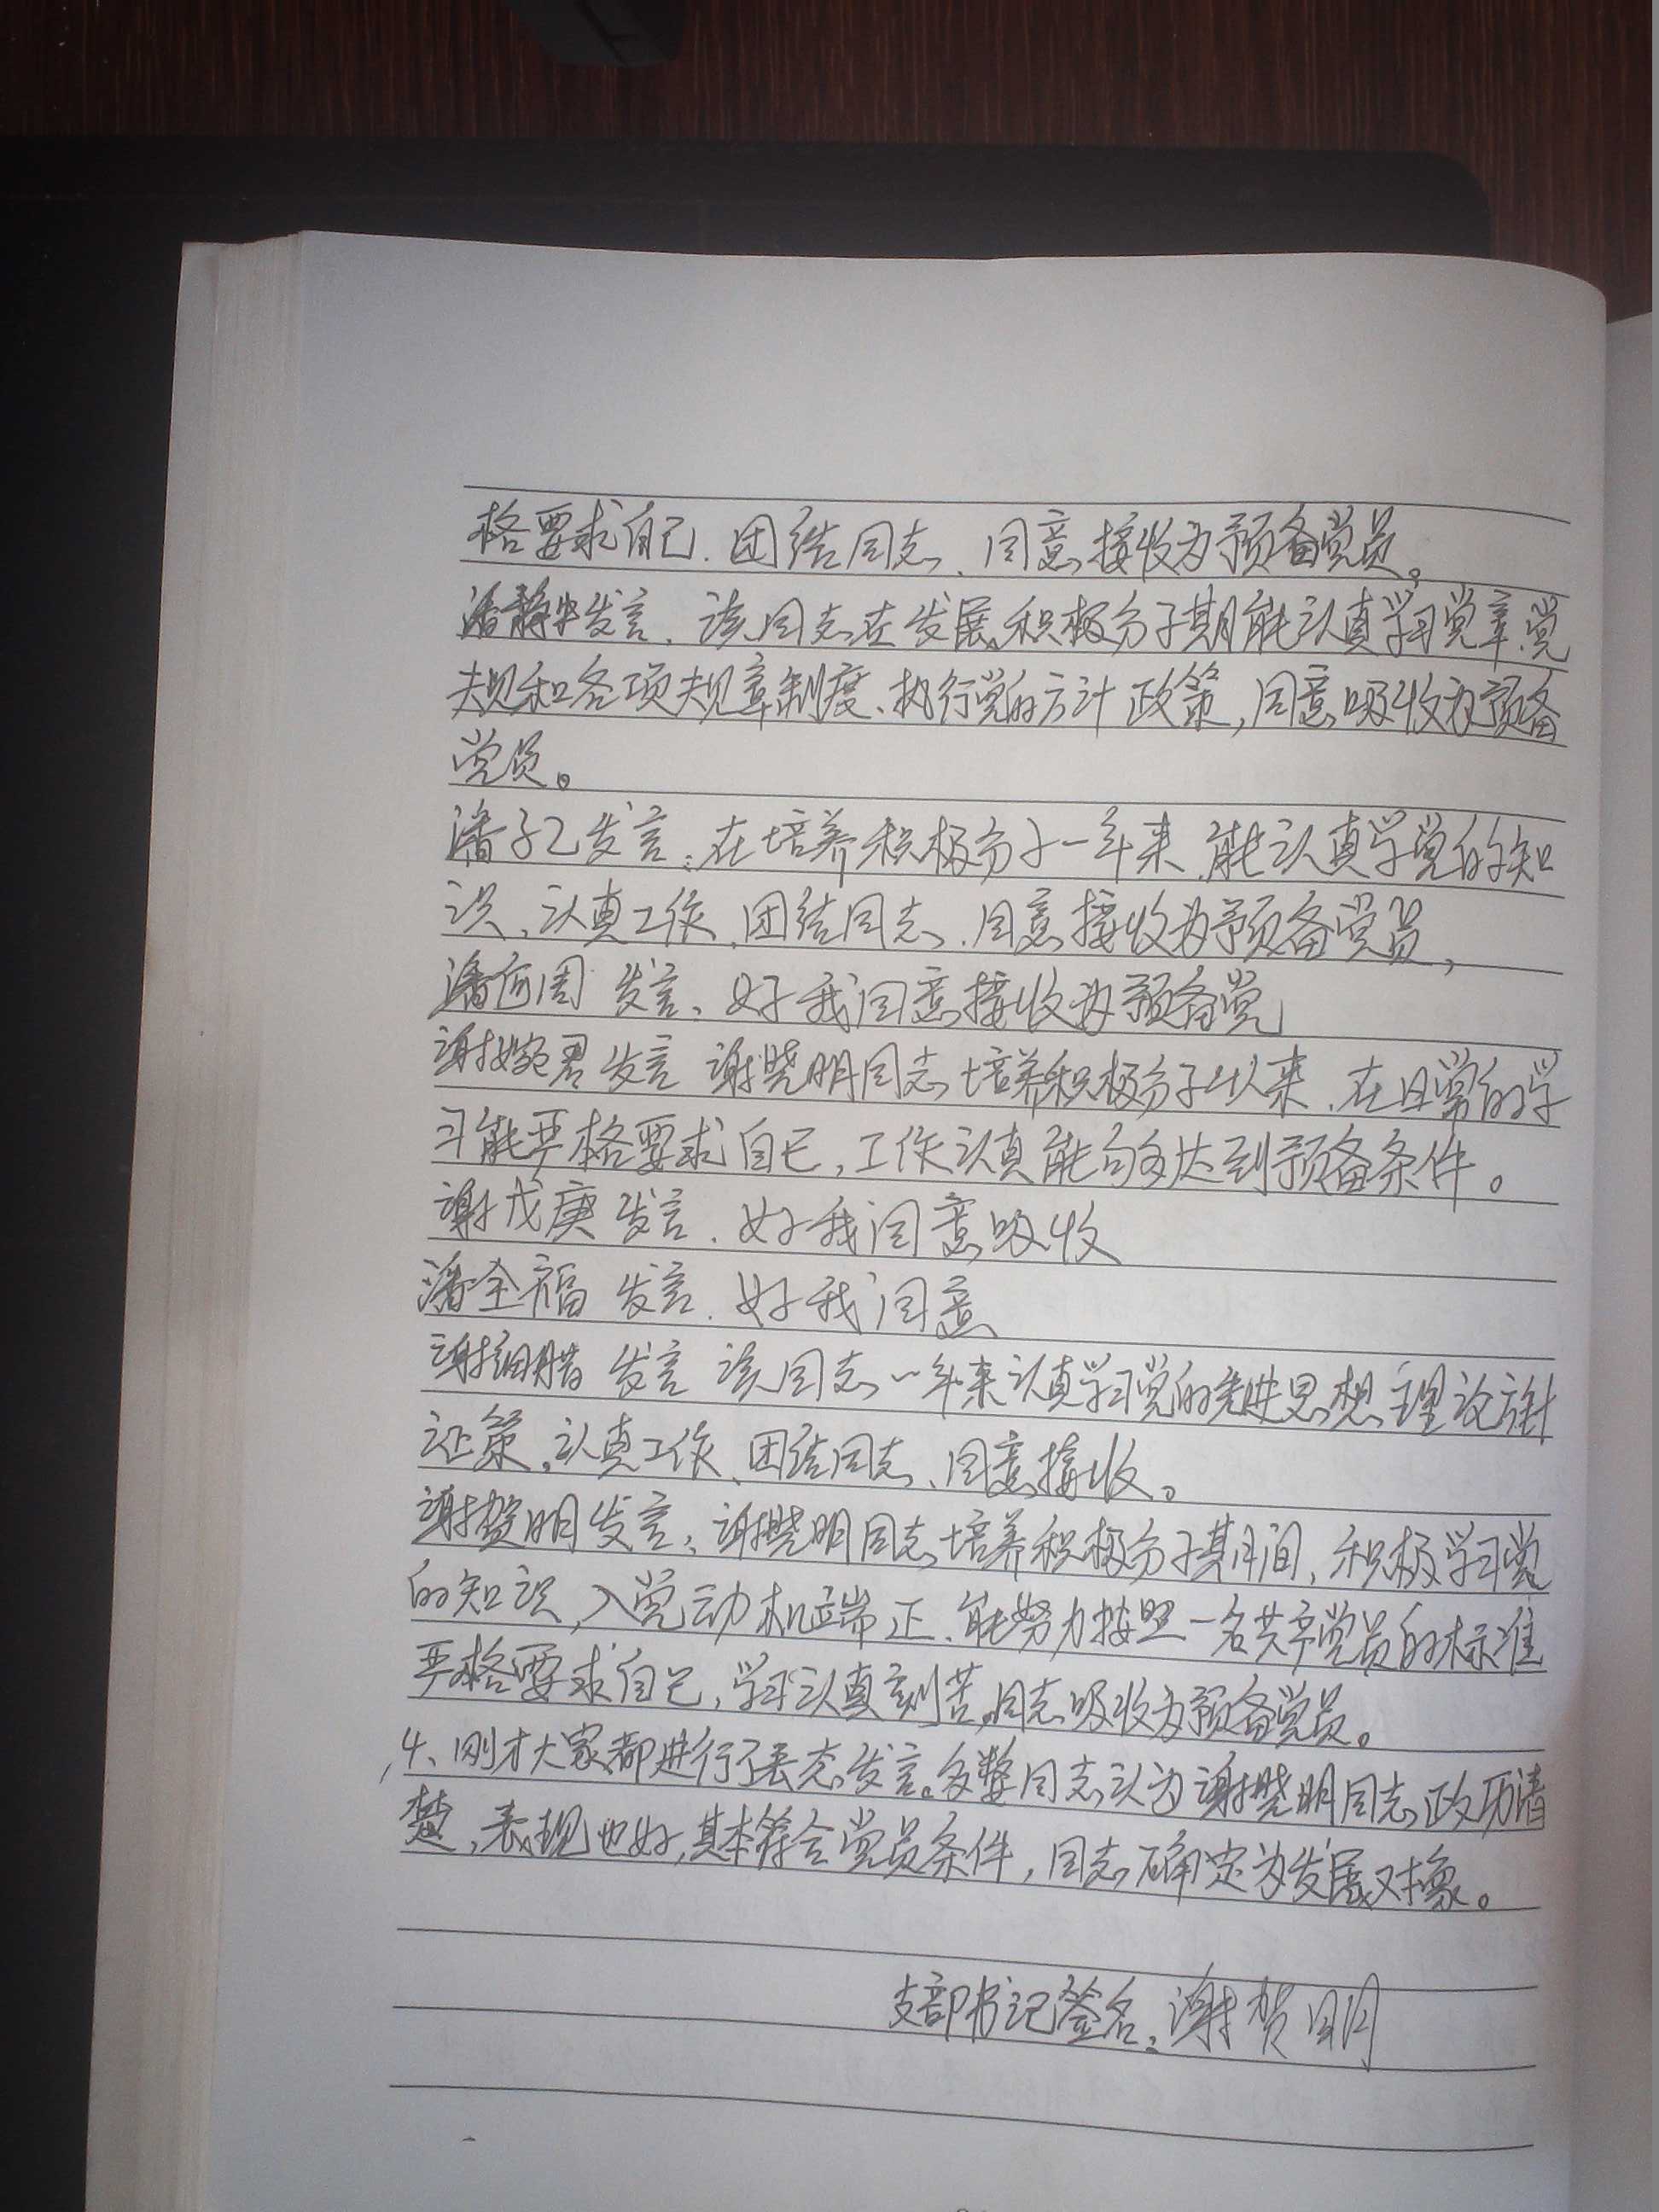 格要求自己、团结同志、同意接收为预备党员。
潘静发言、该同志在发展积极分子期能认真学习党章、党
规和各项规章制度、执行党的方计政策,同意吸收为预备
党员。
潘子乙发言:在培养积极分子一年来、能认真学党的知
识、认真工作、团结同志、同意接收为预备党员,
潘何周 发言、好我同意接收为预备党
谢婉君发言 谢晓明同志培养积极分子以来、在日常的学
习能严格要求自己,工作认真能够达到预备条件。
谢戊庚发言、好我同意吸收
潘全福 发言、好我同意
谢细腊 发言 该同志一年来认真学习党的先进思想、理论方针
证策,认真工作、团结同志、同意接收。
谢贺明发言:谢晓明同志培养积极分子期间,积极学习党
的知识,入党动机端正、能努力按照一名共产党员的标准
严格要求自己,学习认真刻苦,同志吸收为预备党员。
4、刚才大家都进行了表态发言。多数同志认为谢晓明同志政历清
楚,表现也好,基本符合党员条件,同志确定为发展对象。
支部书记签名:谢贺明